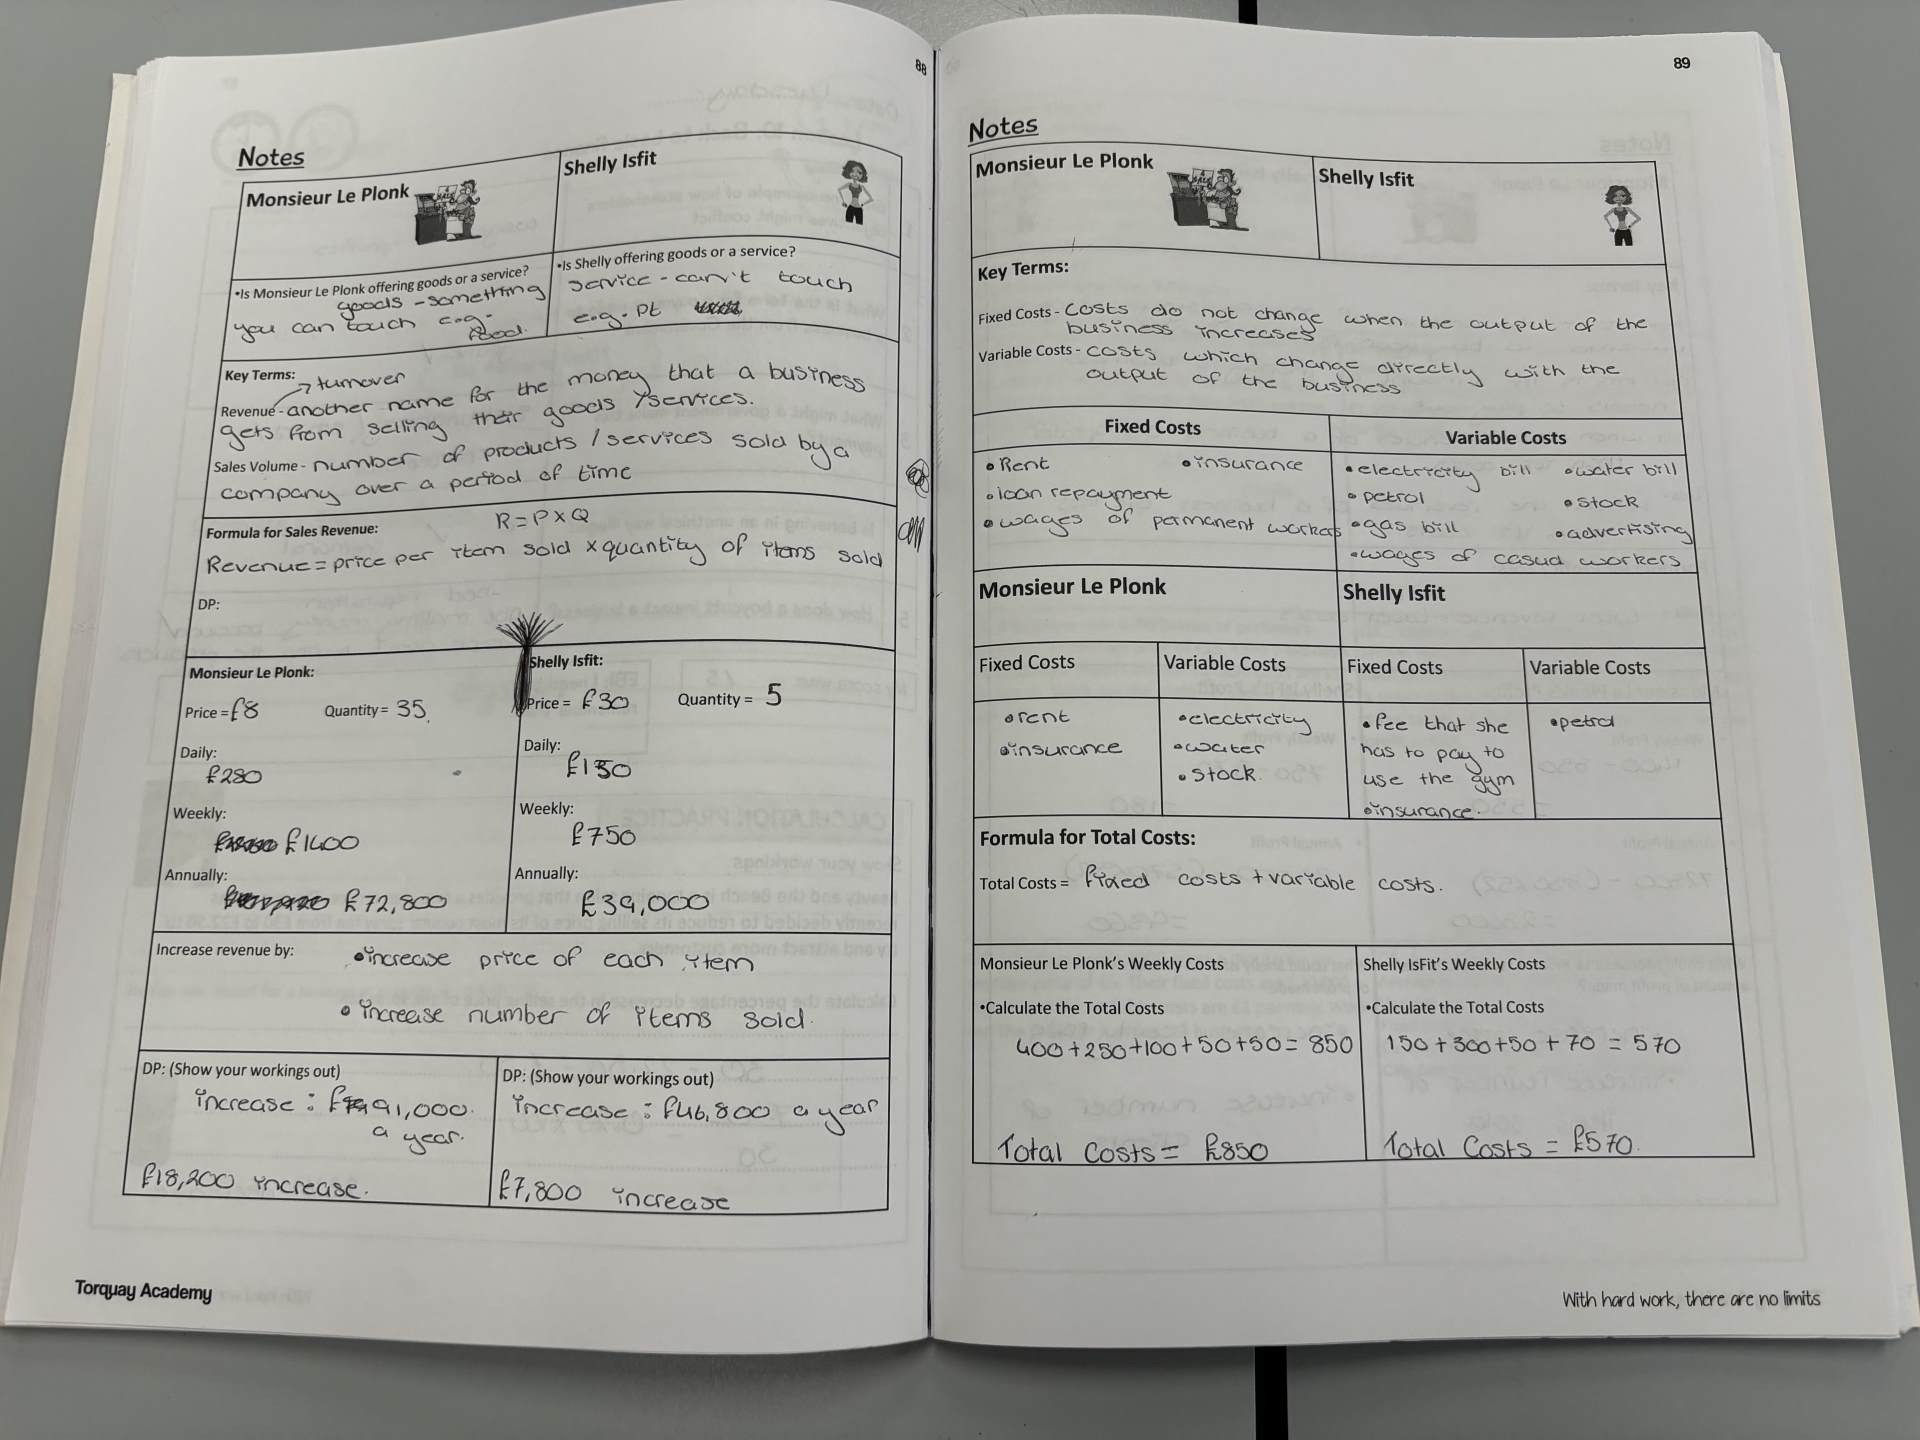 88
Notes
Monsieur Le Plonk
Shelly Isfit
•Is Monsieur Le Plonk offering goods or a service?
goods - something
you can touch e.g.
food.
•Is Shelly offering goods or a service?
service - can't touch
e.g. PT
Key Terms:
turnover
Revenue - another name for the money that a business
gets from selling their goods / services.
Sales Volume - number of products / services sold by a
company over a period of time
Formula for Sales Revenue:
R = P x Q
Revenue = price per item sold x quantity of items sold
DP:
Monsieur Le Plonk:
Price = £8 Quantity = 35
Daily:
£280
Weekly:
£1400
Annually:
£72,800
Shelly Isfit:
Price = £30 Quantity = 5
Daily:
£150
Weekly:
£750
Annually:
£39,000
Increase revenue by:
• increase price of each item
• increase number of items sold.
DP: (Show your workings out)
increase : £91,000
a year.
£18,200 increase.
DP: (Show your workings out)
increase : £46,800 a year
£7,800 increase
Torquay Academy
89
Notes
Monsieur Le Plonk
Shelly Isfit
Key Terms:
Fixed Costs - costs do not change when the output of the
business increases
Variable Costs - costs which change directly with the
output of the business
Fixed Costs
Variable Costs
• Rent • insurance
• loan repayment
• wages of permanent workers
• electricity bill • water bill
• petrol • stock
• gas bill • advertising
• wages of casual workers
Monsieur Le Plonk
Shelly Isfit
Fixed Costs
Variable Costs
Fixed Costs
Variable Costs
• rent
• insurance
• electricity
• water
• stock.
• fee that she
has to pay to
use the gym
• insurance.
• petrol
Formula for Total Costs:
Total Costs = fixed costs + variable costs.
Monsieur Le Plonk's Weekly Costs
•Calculate the Total Costs
400 + 250 + 100 + 50 + 50 = 850
Total Costs = £850
Shelly IsFit's Weekly Costs
•Calculate the Total Costs
150 + 300 + 50 + 70 = 570
Total Costs = £570.
With hard work, there are no limits